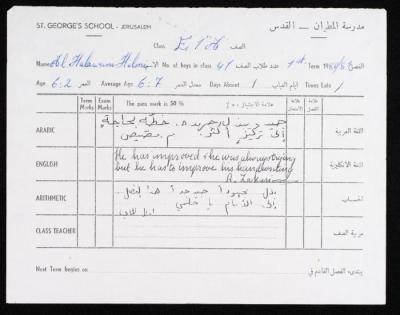 ST. GEORGE'S SCHOOL - JERUSALEM مدرسة المطران — القدس
Class الصف
Al Halawani Helmi No. of boys in class 41 عدد طلاب الصف 1st Term الفصل
Age 6:2 العمر Average Age 6:7 معدل العمر Days Absent 1 ايام الغياب Times Late 1
Term Marks Exam Marks The pass mark is 50 %
ARABIC جيد خطه بحاجة اللغة العربية
إلى تركيز أكثر.
ENGLISH He has improved & he was always trying اللغة الانكليزية
but he has to improve his handwriting
ARITHMETIC بذل مجهوداً جيد جداً هذا الفصل الحساب
إلى الأمام يا حلمي
CLASS TEACHER مربية الصف
Next Term begins on يبتدىء الفصل القادم في